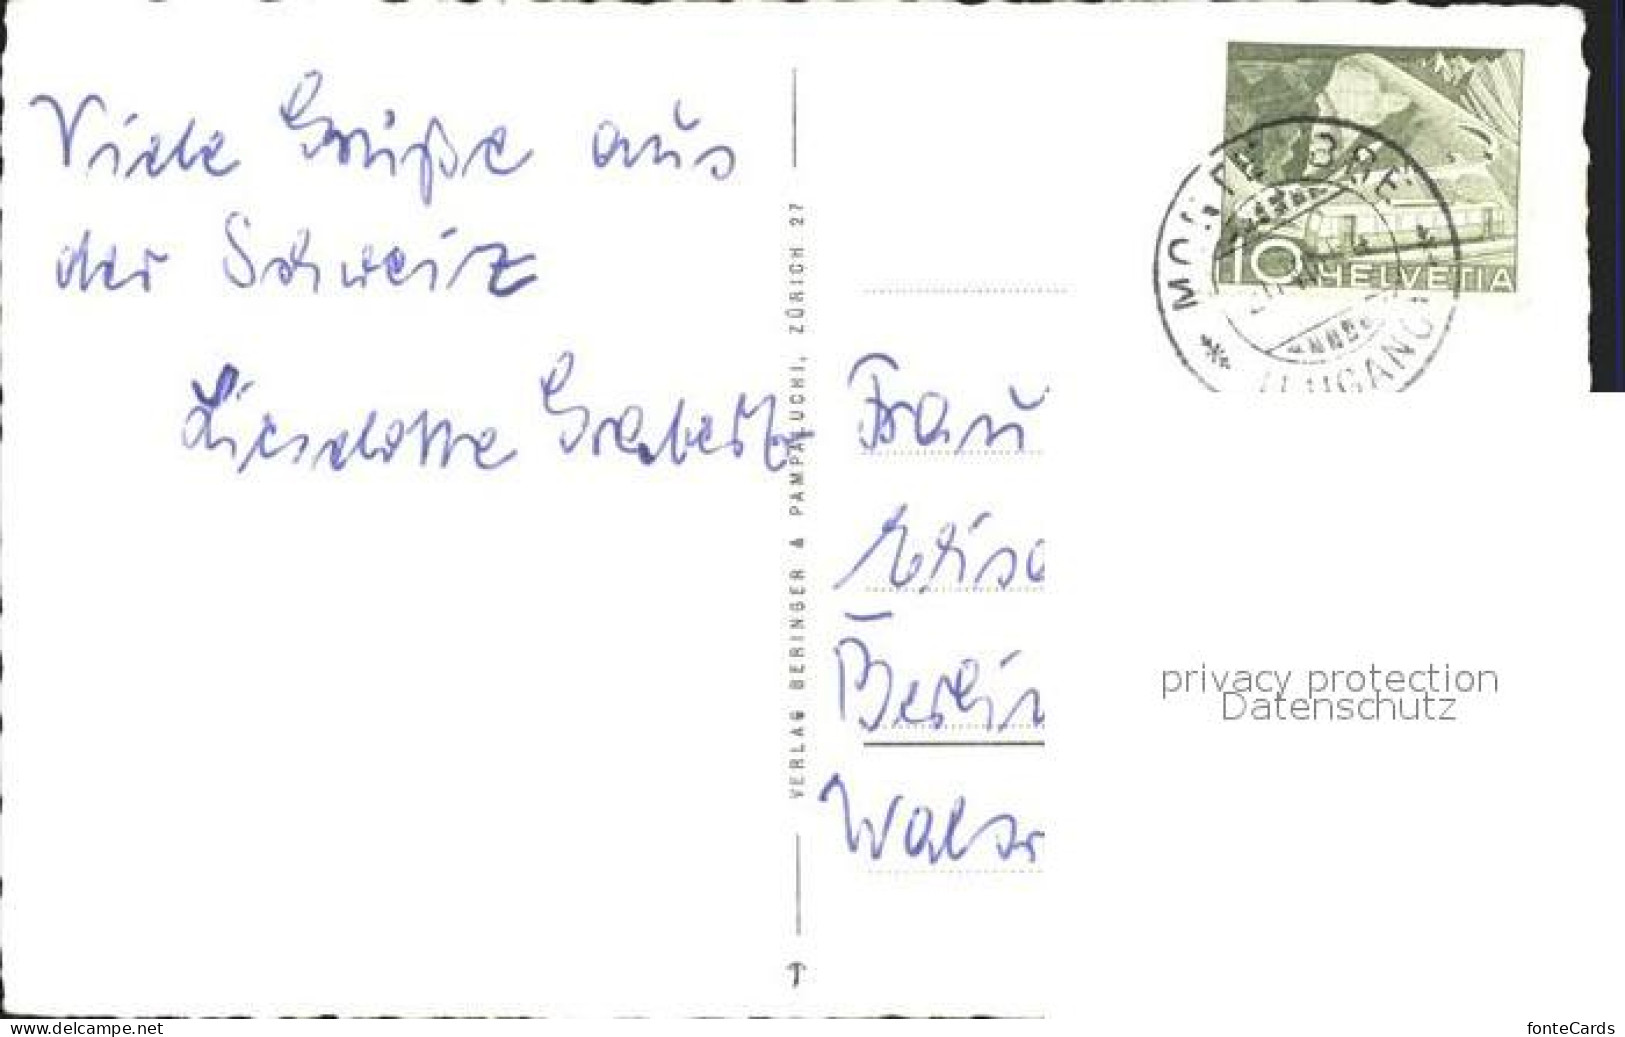 Viele Grüße aus
der Schweiz
Lieselotte
VERLAG BERINGER & PAMPALUCHI, ZÜRICH 27
10 HELVETIA
MONTE BRE
LUGANO
Frau
Berlin
privacy protection
Datenschutz
www.delcampe.net
fonteCards